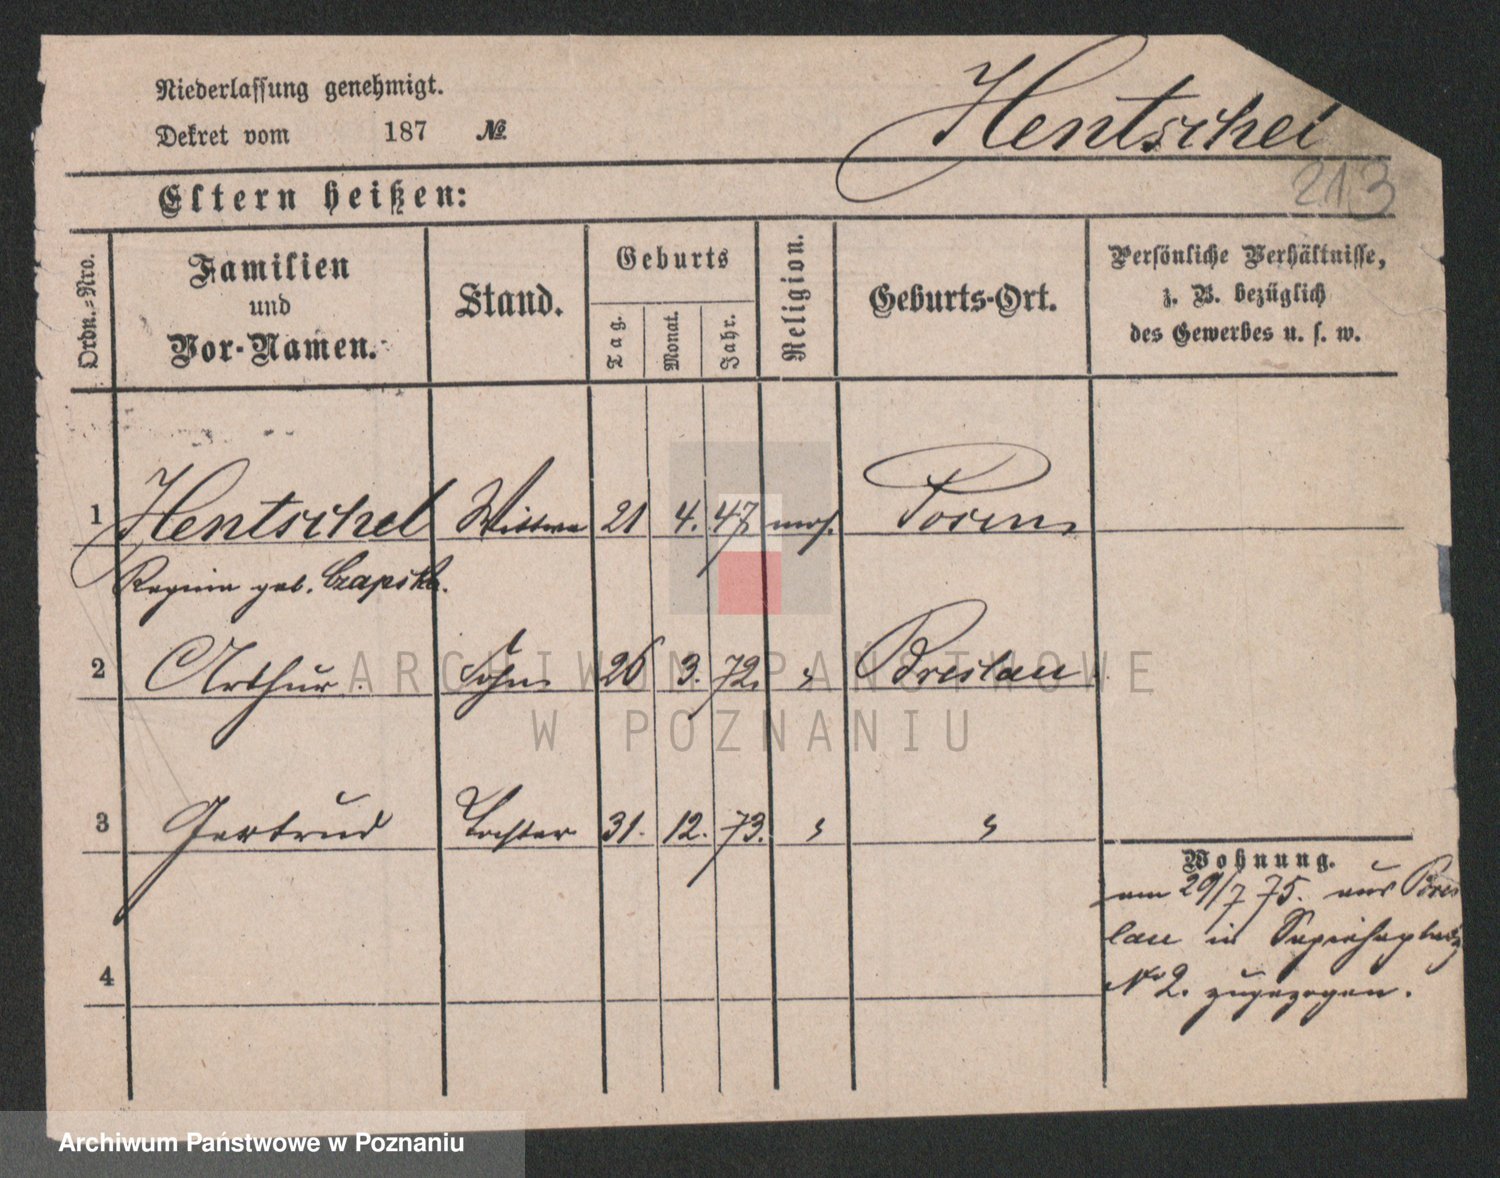 Niederlassung genehmigt.
Dekret vom 187 №
Hentschel
213
Eltern heißen:
Ordn.=Nro.
Familien
und
Vor-Namen.
Stand.
Geburts
Tag.
Monat.
Jahr.
Religion.
Geburts-Ort.
Persönliche Verhältnisse,
z. B. bezüglich
des Gewerbes u. s. w.
1 Hentschel Wittwe 21 4. 47 mos. Posen
Regina geb. Czapska.
2 Arthur. Sohn 26 3. 72. " Breslau
3 Gertrud Tochter 31. 12. 73. " "
Wohnung.
am 29/7 75. aus Bres
lau in Sapiehaplatz
No 2. zugezogen.
4
ARCHIWUM PAŃSTWOWE
W POZNANIU
Archiwum Państwowe w Poznaniu